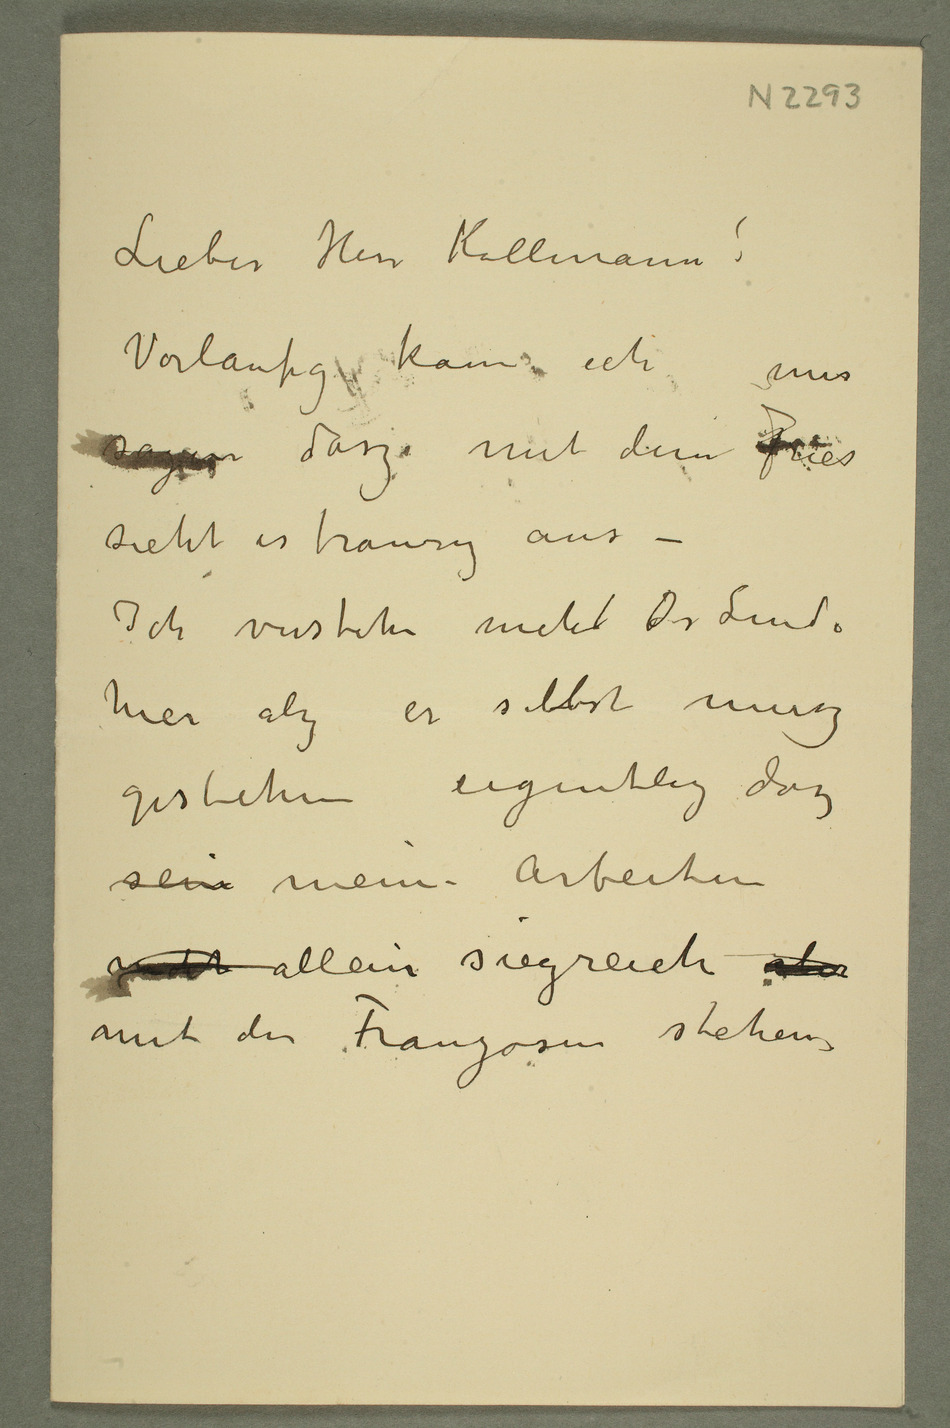 N 2293
Lieber Herr Kollmann!
Vorlaufig kann ich nur
sagen dasz mit dem Fries
sieht es traurig aus –
Ich verstehe nicht Dr Lind.
hier alz er selbst musz
gestehen eigentlig dasz
sein meine Arbeiten
nicht allein siegreich aber
mit den Franzosen stehen,